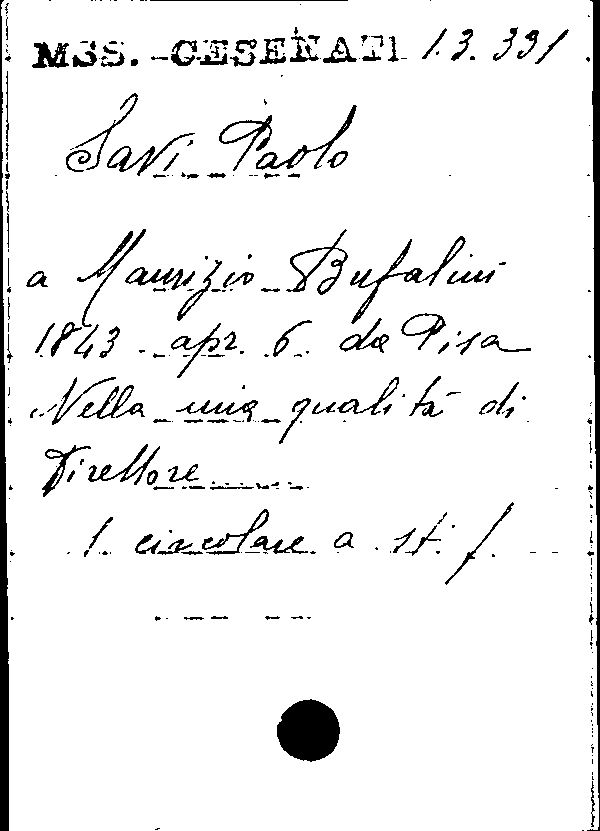 MSS. CESENATI 1.3.331
Savi Paolo
a Maurizio Bufalini
1843. apr. 6. da Pisa
Nella mia qualità di
Direttore
1. circolare a st. f.